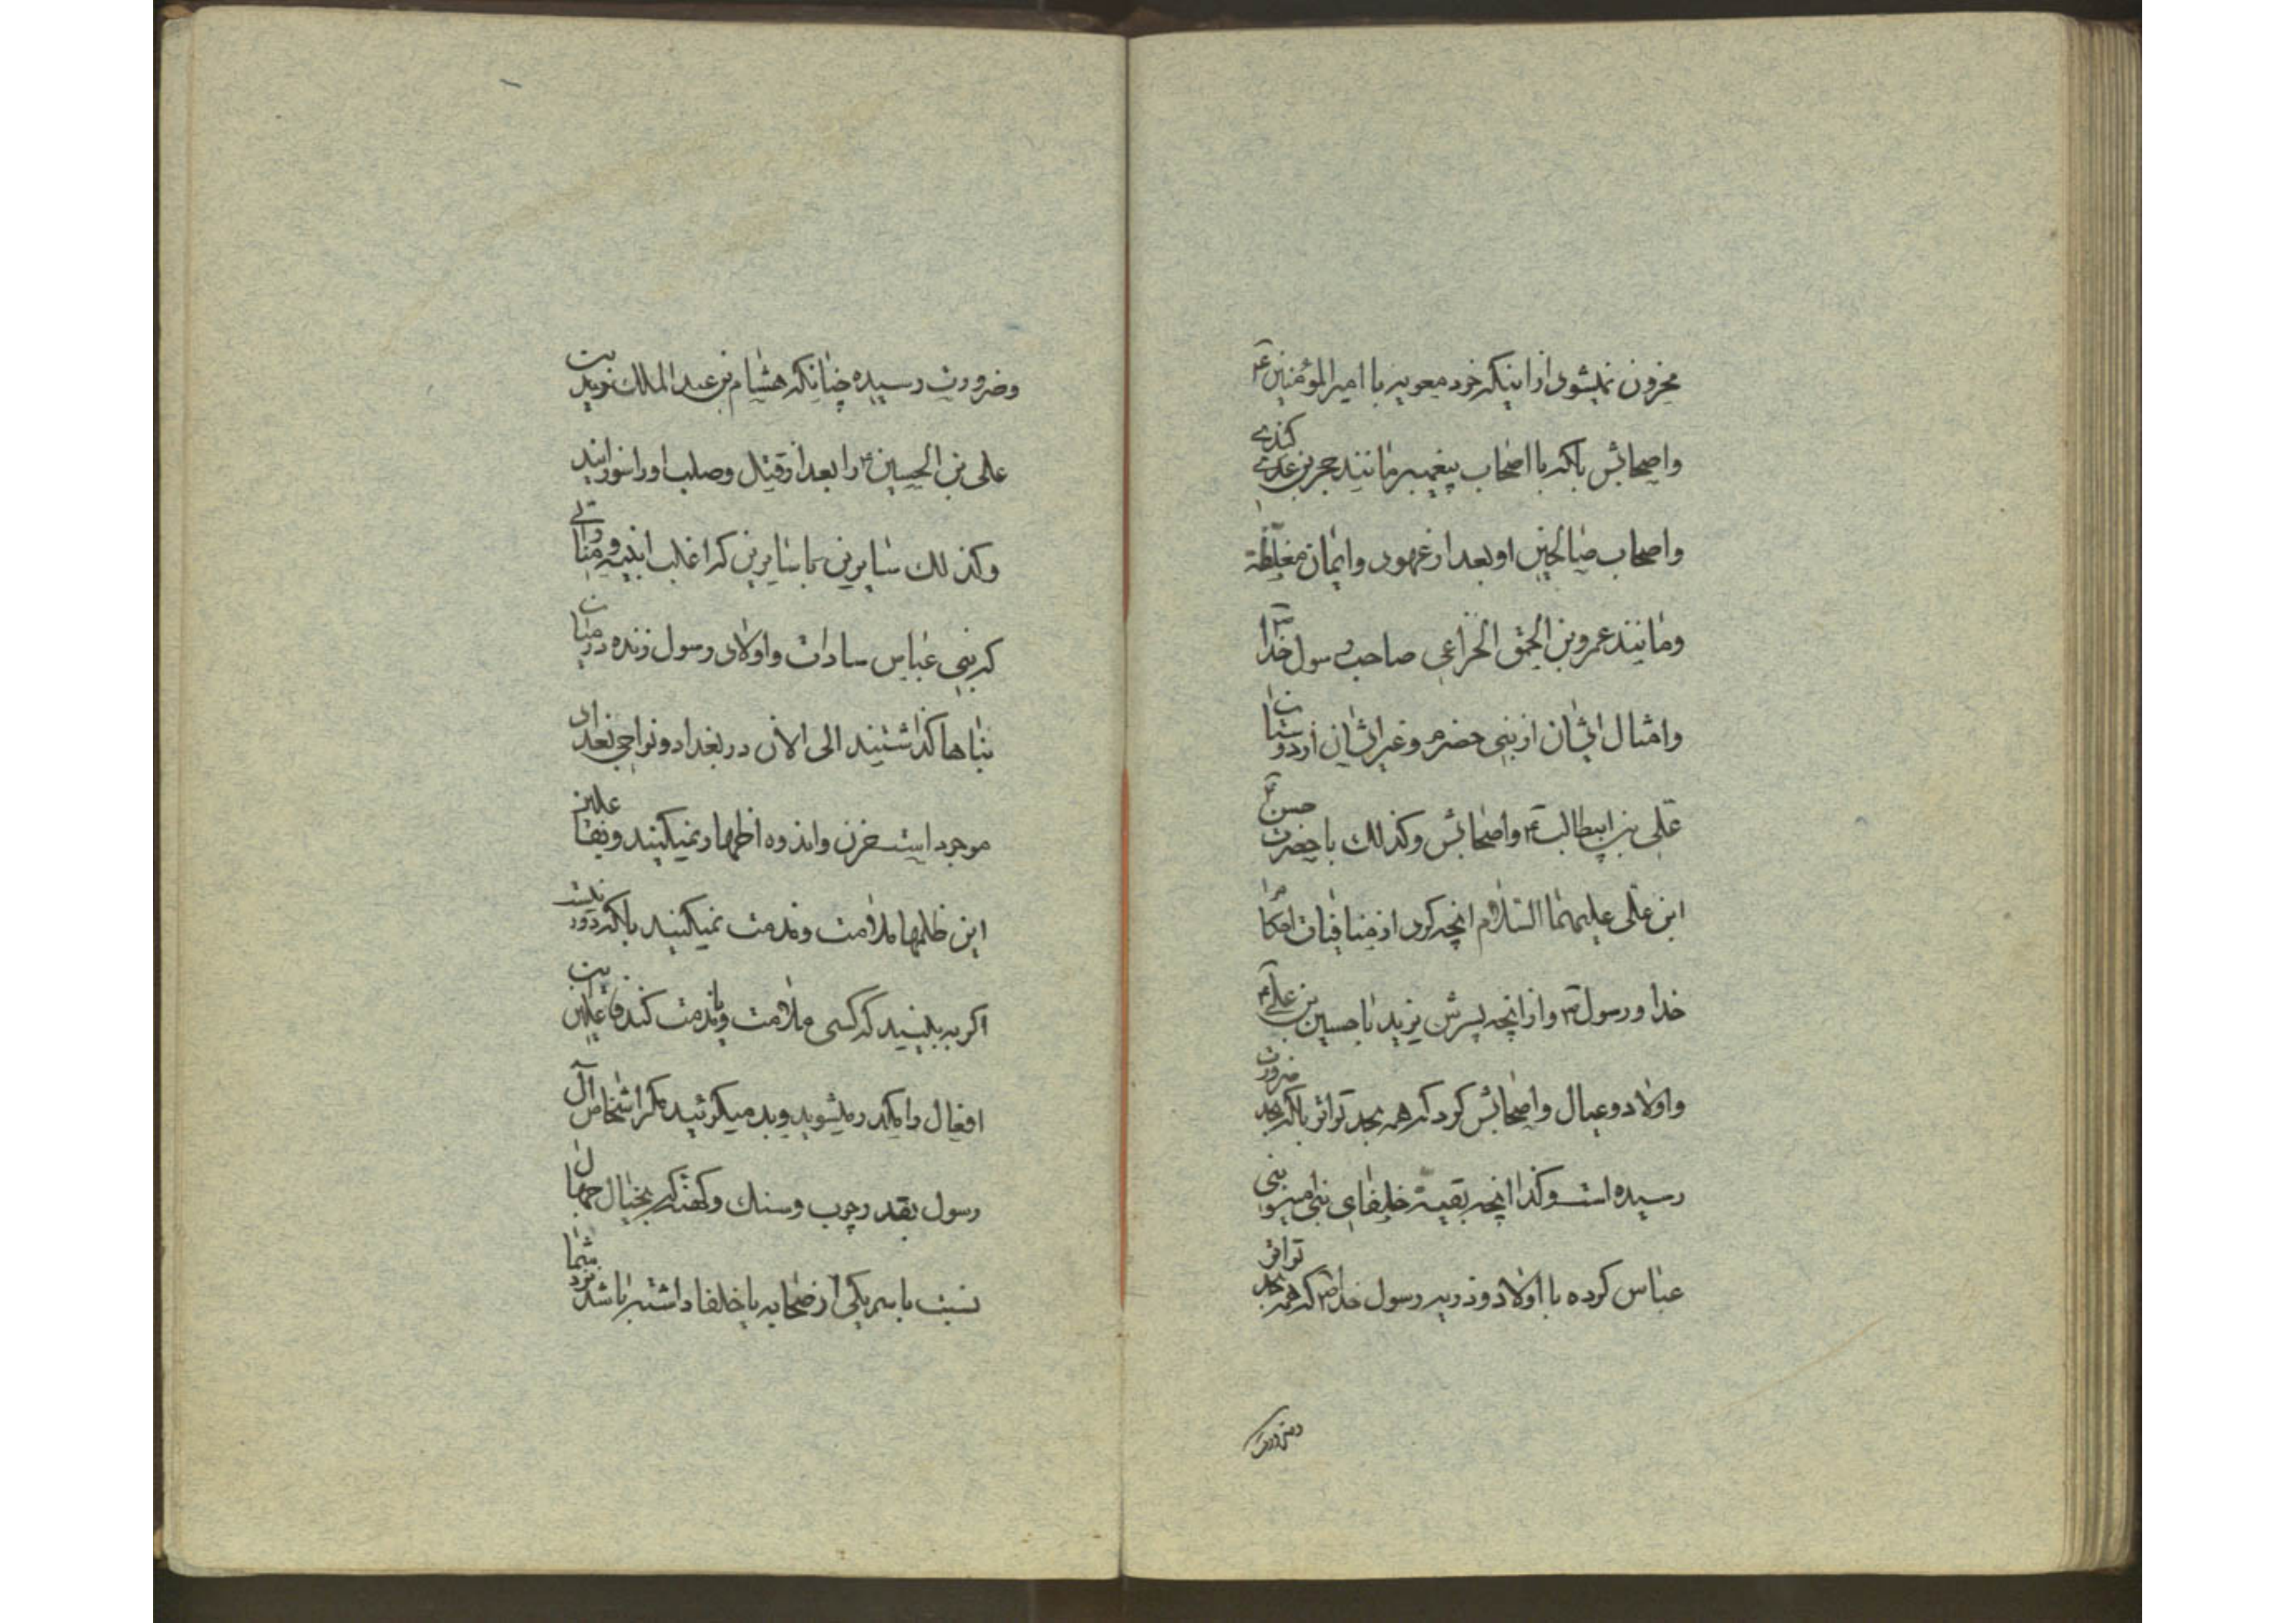 محزون نمیشوی از اینکه خود معویه با امیر المؤمنین ع
واصحابش بلکه با اصحاب پیغمبر مانند حجر بن عدی کندی
واصحاب صالحین او بعد از عهود وایمان مغلظة
ومانند عمرو بن الحمق الخزاعی صاحب رسول خدا ص
وامثال ایشان از بنی حضرم وغیر ایشان از دوستان
علی بن ابیطالب ع واصحابش وکذلک با حضرت حسن ع
ابن علی علیهما السلام انچه کرد از منافیات احکام
خدا ورسول ص واز انچه پسرش یزید با حسین بن علی ع
واولاد وعیال واصحابش کرد که همه بحد تواتر بلکه بحد ضرورت
رسیده است وکذا انچه بقیة خلفای بنی امیه وبنی
عباس کرده با اولاد وذریه رسول خدا ص که همه بحد تواتر
وضرورت
وضرورت رسیده چنانکه هشام بن عبد الملک زید بن
علی بن الحسین ع را بعد از قتل وصلب او را سوزانید
وکذلک سایرین با سایرین که اغلب ابنیه
که بنی عباس سادات واولاد رسول زنده در میان
بناها گذاشتند الی الان در بغداد ونواحی بغداد
موجود است حزن واندوه اظهار نمیکنید وبفاعلین
این ظلمها ملامت ومذمت نمیکنید بلکه
اگر به بینید که کسی ملامت ویا مذمت کند فاعلین این
افعال را مکدر میشوید وبد میگوئید مگر اشخاص آل
رسول بقدر چوب وسنک وکهنه که بخیال جهال
نسبت با یکی از صحابه یا خلفا داشته باشد نزد شما